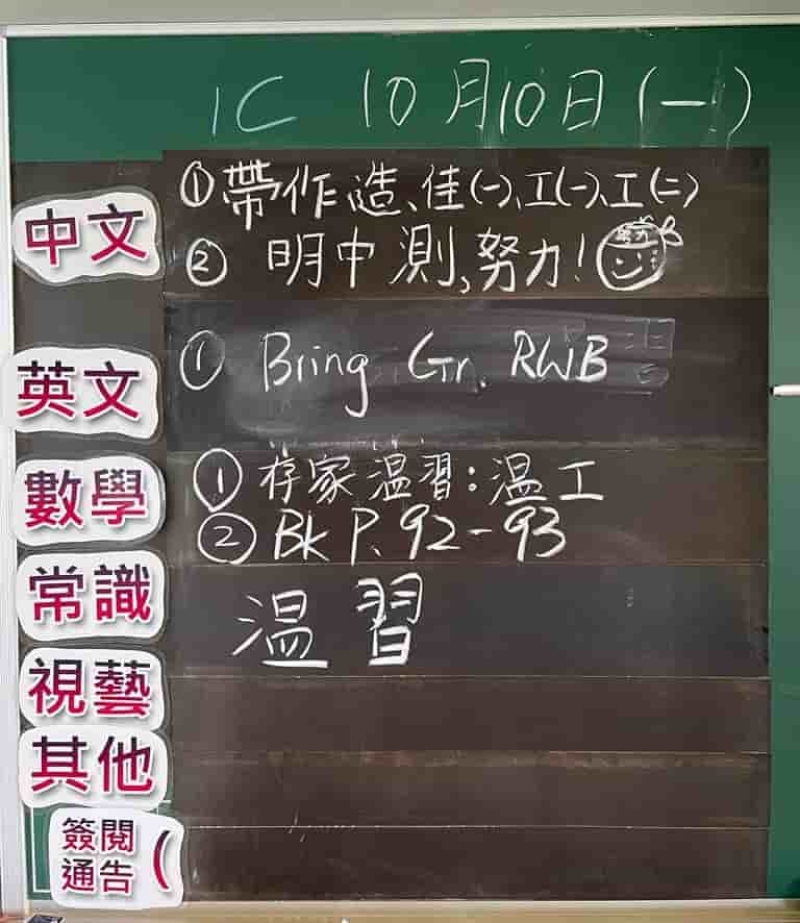 1C 10月10日(一)
中文 ①帶作造、佳(一)、工(一)、工(二)
②明中測,努力! 努力
英文 ① Bring Gr. RWB
數學 ①存家溫習:溫工
② Bk P. 92-93
常識 溫習
視藝
其他
簽閱通告 (